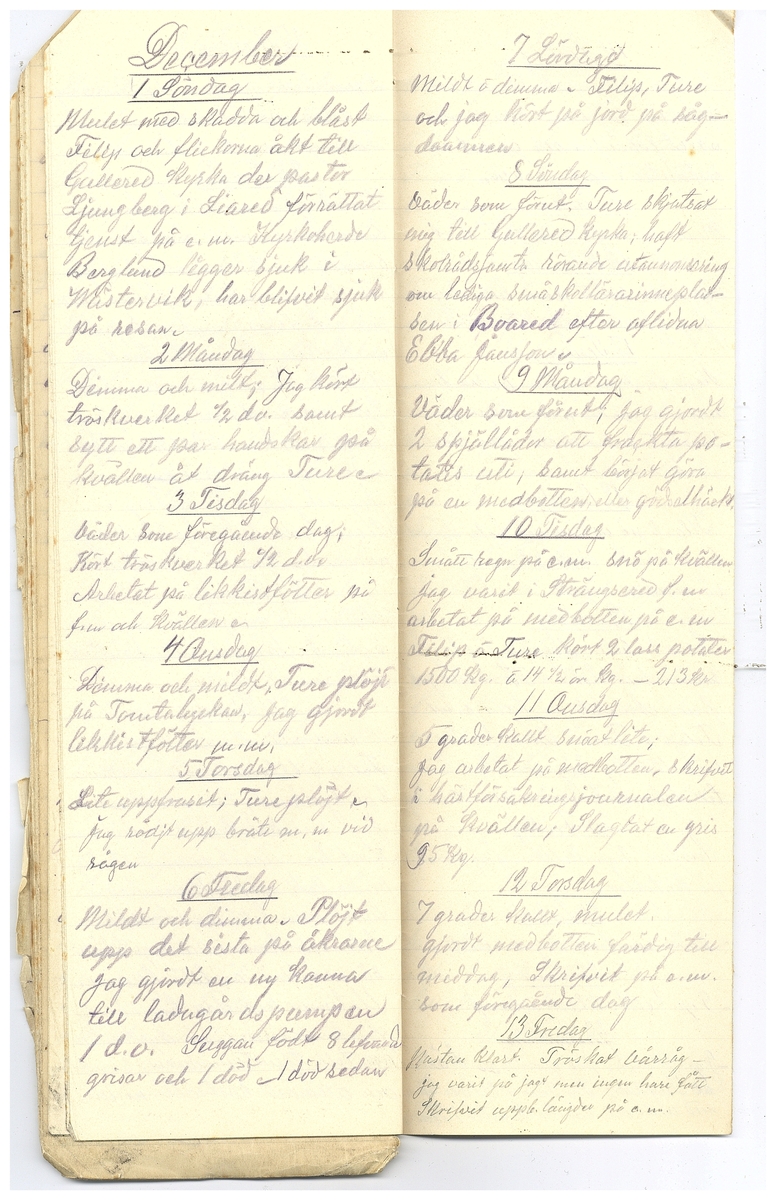 December
1 Söndag
Mulet med skadda och blåst
Filip och flickorna åkt till
Gullered kyrka der pastor
Ljungberg i Liared förrättat
tjenst på e.m. Kyrkoherde
Berglund legger sjuk i
har blifvit sjuk
på resan.
2 Måndag
Dimma och mildt; Jag kört
tröskverket 1/2 d.v. samt
sytt ett par handskar på
kvällen åt dräng Ture
3 Tisdag
Väder som föregående dag;
Kört tröskverket 1/2 d.v.
Arbetat på likkistfötter på
f.m och kvällen
4 Onsdag
Dimma och mildt, Ture plöjt
på jag gjordt
likkistfötter m.m.
5 Torsdag
Lite uppfrusit; Ture plöjt
jag rödjt upp bråte m.m vid
sågen
6 Fredag
Mildt och dimma. Plöjt
upp det sista på åkrarne
jag gjordt en ny kanna
till ladugårdspumpen
1 d.v. Suggan född 8 lefvande
grisar och 1 död 1 död sedan
7 Lördag
Mildt o dimma. Filip, Ture
och jag kört på jord på såg-
dammen
8 Söndag
Väder som förut. Ture skjutsat
mig till Gullered kyrka, haft
skolrådsjamtr rörande utannonsering
om lediga småskollärarinneplat-
sen i Boared efter aflidna
Ebba Jansson.
9 Måndag
Väder som förut; jag gjordt
2 spjällådor att frakta po-
tatis uti, samt börjat göra
på en medbotten eller gödselhäck.
10 Tisdag
Smått regn på e.m. snö på kvällen
jag varit i Strängsered f.m
arbetat på medbotten på e.m
Filip o Ture kört 2 lass potater
1500 Kg. a 14 1/2 ör Kg. - 213 Kr
11 Onsdag
5 grader kallt snöat lite;
jag arbetat på medbotten, skrifvit
i hästförsäkringsjournalen
på kvällen; Slagtat en gris
95 Kg.
12 Torsdag
7 grader kallt, mulet.
gjordt medbotten färdig till
middag, Skrifvit på e.m.
som föregående dag
13 Fredag
Nästan klart. Tröskat vårråg-
jag varit på jagt men ingen hare fått
Skrifvit uppb.längder på e.m.